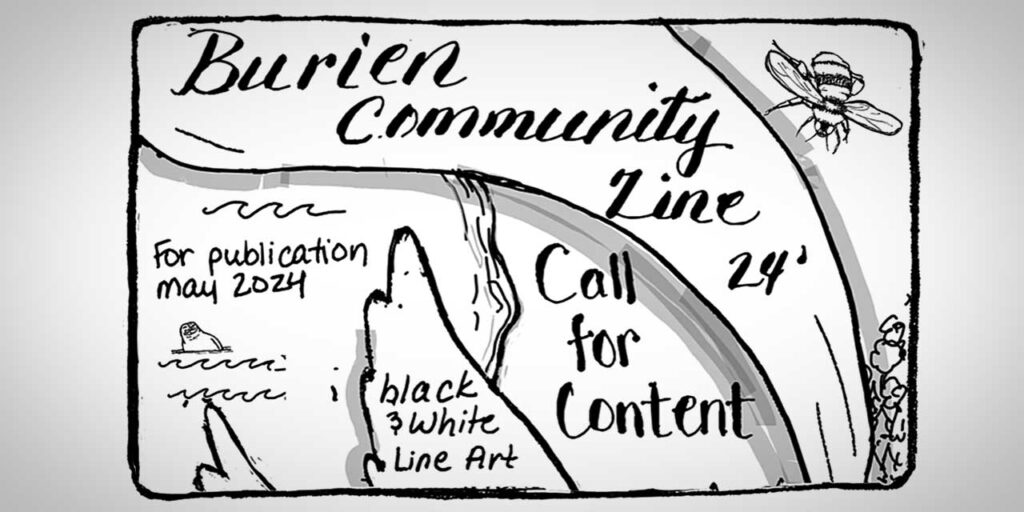 Burien
Community
Zine
24'
For publication
may 2024
Call
for
Content
black
& White
Line Art